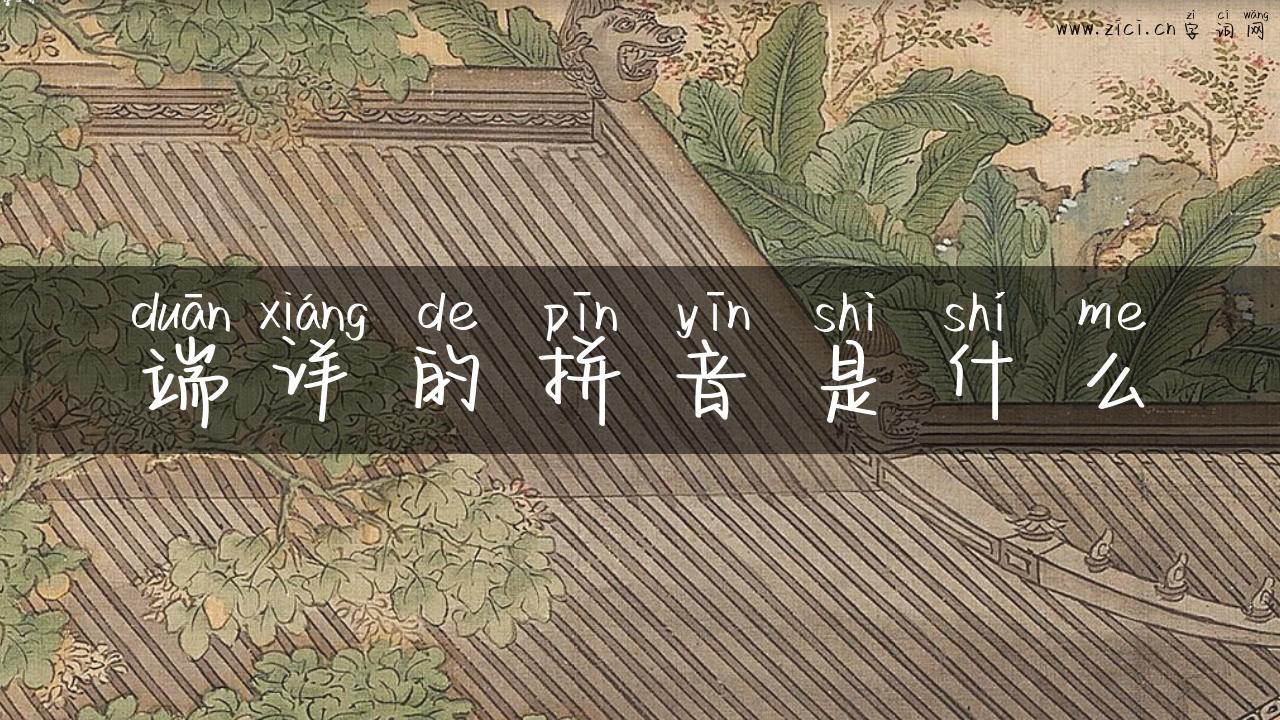 zì cí wǎng
www.zici.cn 字词网
duān xiáng de pīn yīn shì shí me
端详的拼音是什么